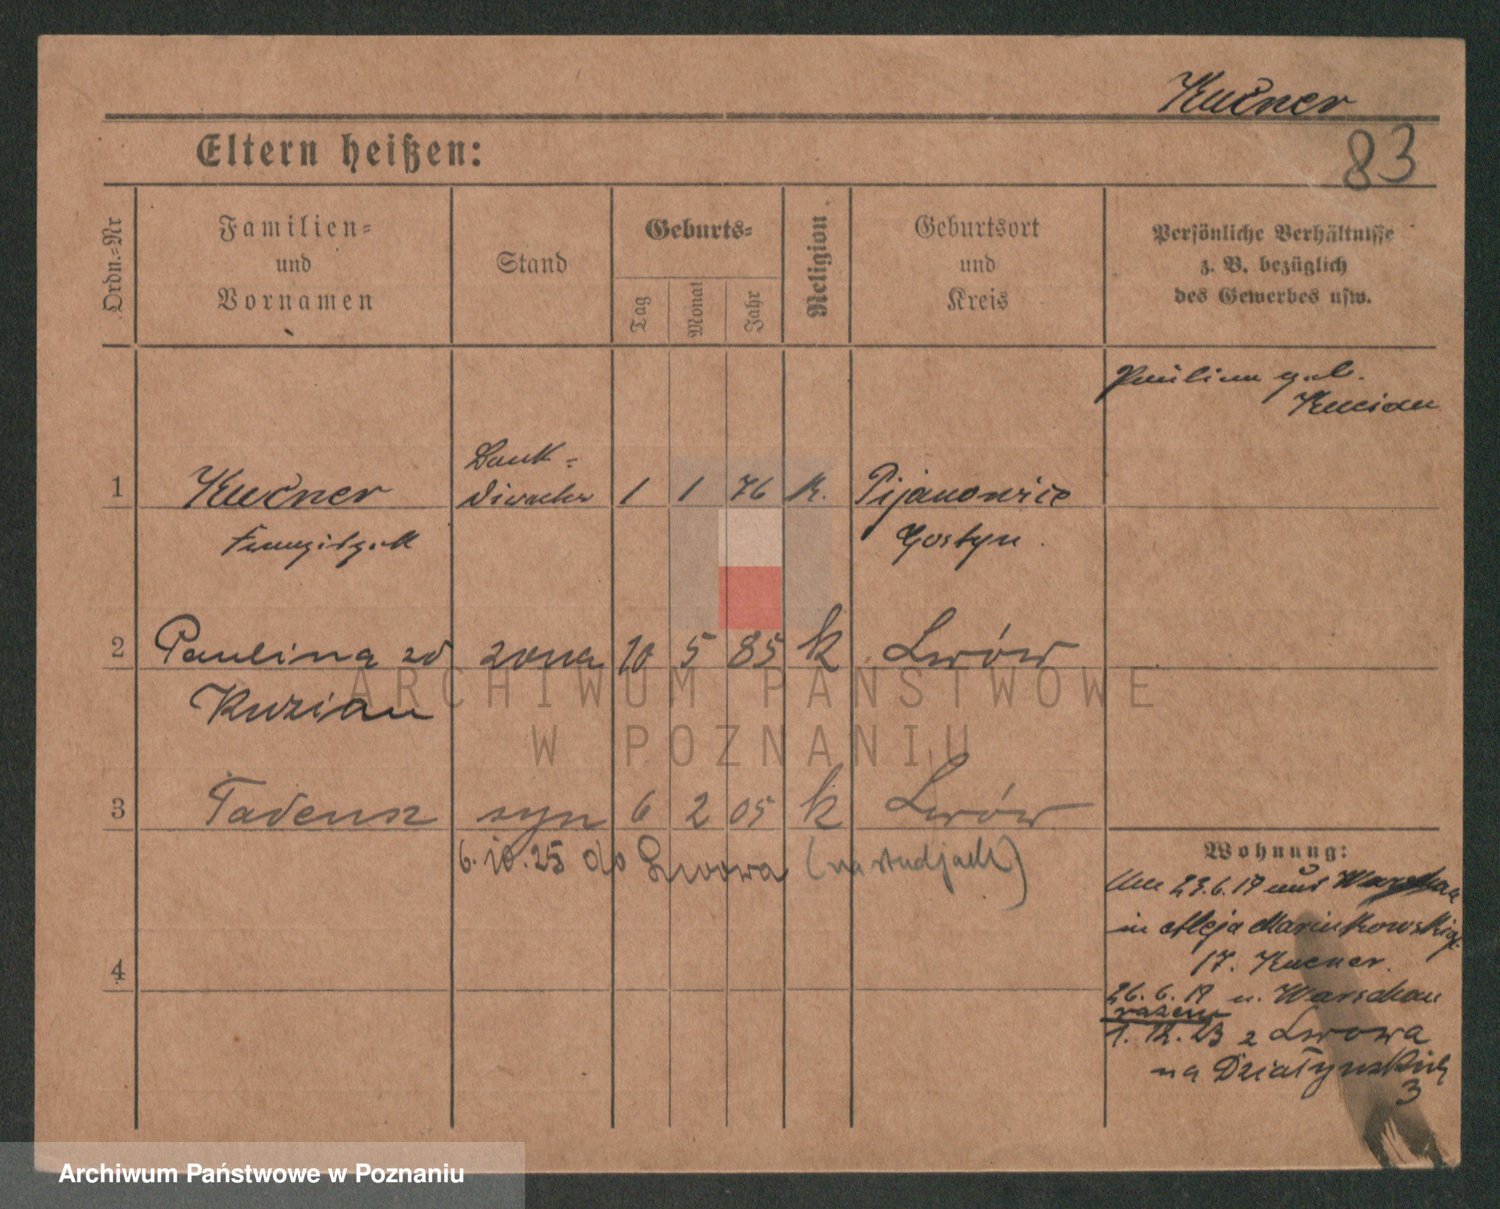 Kučner
83
Eltern heißen:
Ordn.-Nr
Familien-
und
Vornamen
Stand
Geburts-
Tag
Monat
Jahr
Religion
Geburtsort
und
Kreis
Persönliche Verhältnisse
z. B. bezüglich
des Gewerbes usw.
Bank-
1 Kučner 1 1 76 k. Pijanowice
Gostyn.
2 Paulina zd żona 10 5 85 k Lwów
Kuzian
3 Tadeusz syn 6 2 05 k Lwów
6.10.25 do Lwowa (na studjach)
4
Wohnung:
in Aleja Marcinkowskiego
17. Kucner.
26.6.19 u. Warschau
razem
1.12.23 z Lwowa
na Działyńskich
3
ARCHIWUM PAŃSTWOWE
W POZNANIU
Archiwum Państwowe w Poznaniu